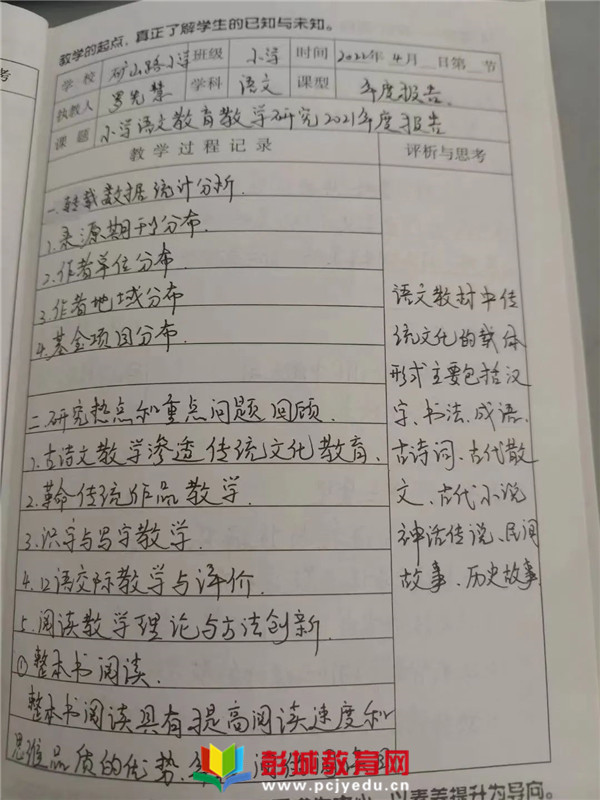 教学的起点，真正了解学生的已知与未知。
学 校 矿山路小学 班级 小学 时间 2022年 4月 日第 节
执教人 学科 语文 课型 年度报告.
课 题 小学语文教育教学研究2021年度报告
教 学 过 程 记 录 评析与思考
一.转载数据统计分析.
1.来源期刊分布.
2.作者单位分布.
3.作者地域分布
4.基金项目分布.
二.研究热点和重点问题回顾.
1.古诗文教学渗透传统文化教育.
2.革命传统作品教学.
3.识字与写字教学.
4.口语交际教学与评价.
5.阅读教学理论与方法创新.
①整本书阅读.
整本书阅读具有提高阅读速度和
思维品质的优势.
语文教材中传
统文化的载体
形式主要包括汉
字、书法、成语、
古诗词、古代散
文、古代小说
神话传说、民间
故事、历史故事
彭城教育网
www.pcjyedu.cn
以素养提升为导向。
考